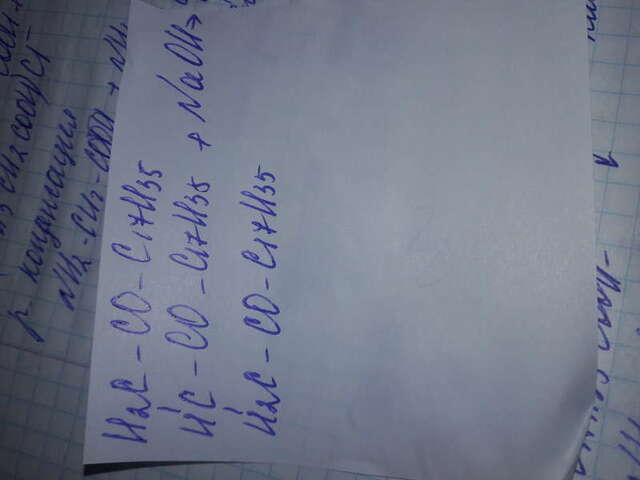 CH2COOH)Cl
р. конденсация
NH2-CH2-COOH + NH
H2C - CO - C17H35
HC - CO - C17H35 + NaOH→
H2C - CO - C17H35
COOH